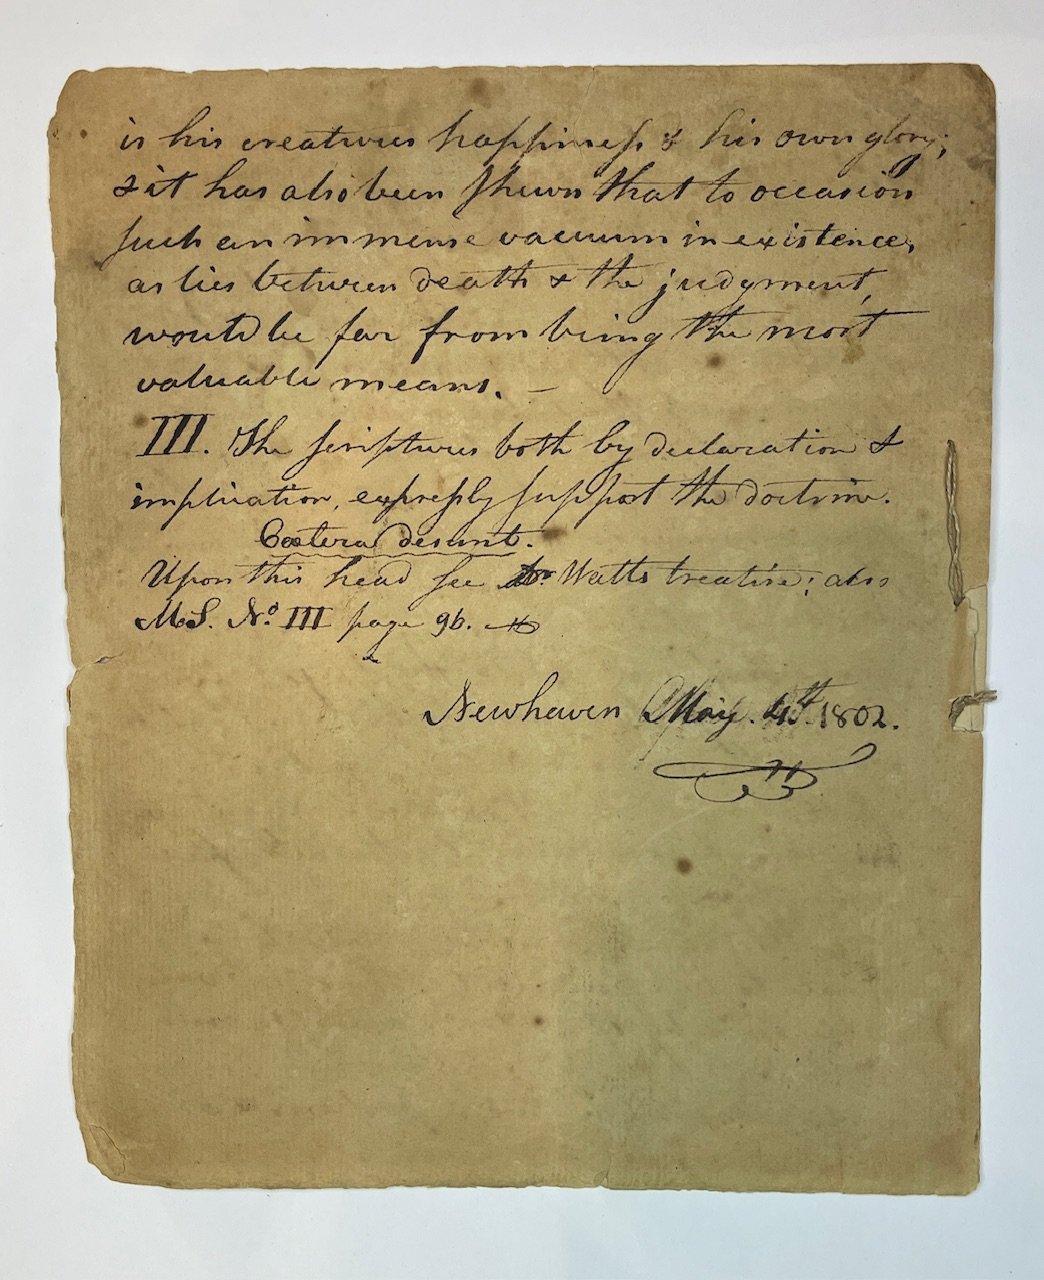 is his creatures happiness & his own glory;
& it has also been shewn that to occasion
such an immense vacuum in existence,
as lies between death & the judgment,
would be far from being the most
valuable means. –
III. The scriptures both by declaration &
implication, expressly support the doctrine.
Cœtera desunt.
Upon this head see Dr. Watts treatise; also
MS. No. III page 96.
Newhaven May. 4th. 1802.